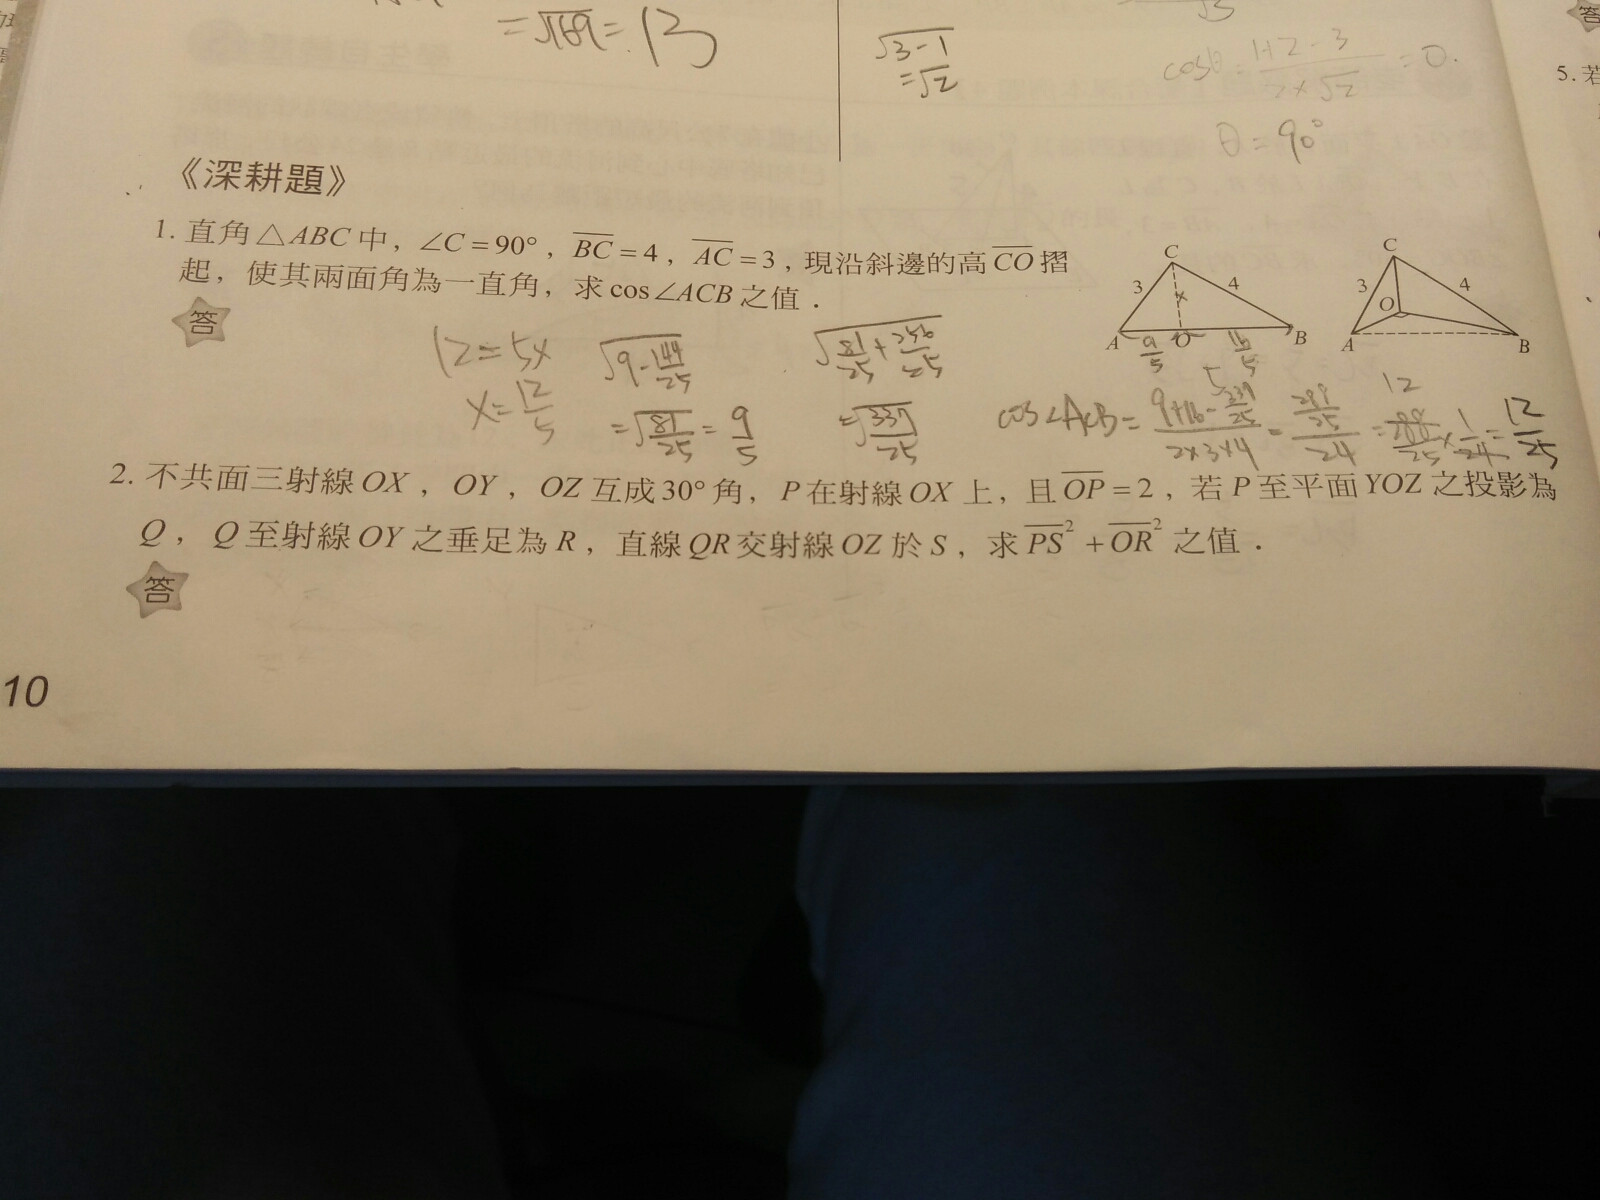 =√169=13
√3-1
=√2
cosθ=(1+2-3)/(2×√2)=0.
θ=90°
答
5.若
《深耕題》
1. 直角△ABC中，∠C=90°，BC=4，AC=3，現沿斜邊的高CO摺
起，使其兩面角為一直角，求cos∠ACB之值．
答
C 3 4 x A O B 9/5 16/5 5
C 3 4 O A B
12=5x
x=12/5
√9-144/25
=√81/25=9/5
√81/25+256/25
=√337/25
2. 不共面三射線OX，OY，OZ互成30°角，P在射線OX上，且OP=2，若P至平面YOZ之投影為
Q，Q至射線OY之垂足為R，直線QR交射線OZ於S，求PS²+OR²之值．
答
10